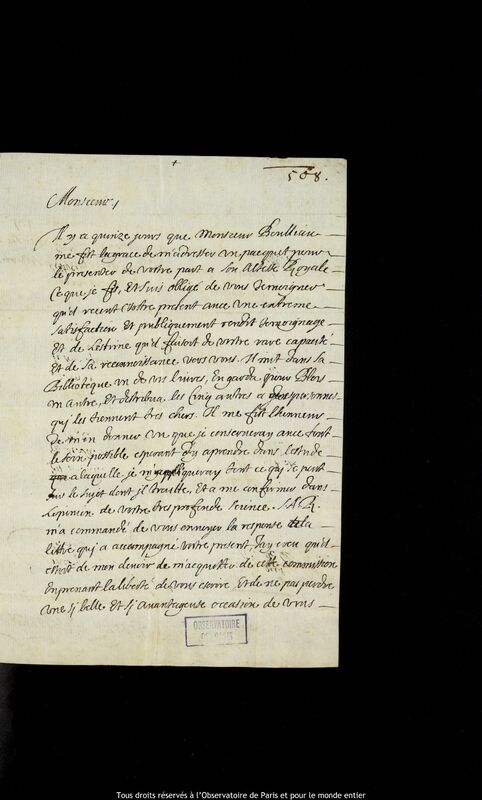 508.
Monsieur,
Il y a quinze jours que Monsieur Boulliau
me fit la grace de m'adresser un pacquet pour
le presenter de vostre part a son Altesse Royale
Ce que je fis, Et suis obligé de vous tesmoigner
qu'il receut vostre present avec une extreme
satisfaction Et publiquement rendit tesmoignage
Et de l'estime qu'il faisoit de vostre rare capacité
Et de sa reconnoissance vers vous. Il mit dans sa
Biblioteque un de vos livres, En garda pour Blois
un autre, Et distribua les cinq autres a des personnes
qui les tiennent tres chers. Il me fit l'honneur
de m'en donner un que je conserveray avec tout
le soin possible esperant d'y aprendre dans l'estude
a laquelle je m'appliqueray tout ce qui se peut
sur le sujet dont il traitte, Et a me confirmer dans
l'opinion de vostre tres profonde science. S.A.R.
m'a commandé de vous envoyer la response de la
lettre qui a accompagné vostre present, J'ay creu qu'il
estoit de mon devoir de m'acquitter de cette commission
En prenant la liberté de vous escrire, Et de ne pas perdre
une si belle Et si avantageuse occasion de vous
OBSERVATOIRE
DE PARIS
Tous droits réservés à l'Observatoire de Paris et pour le monde entier